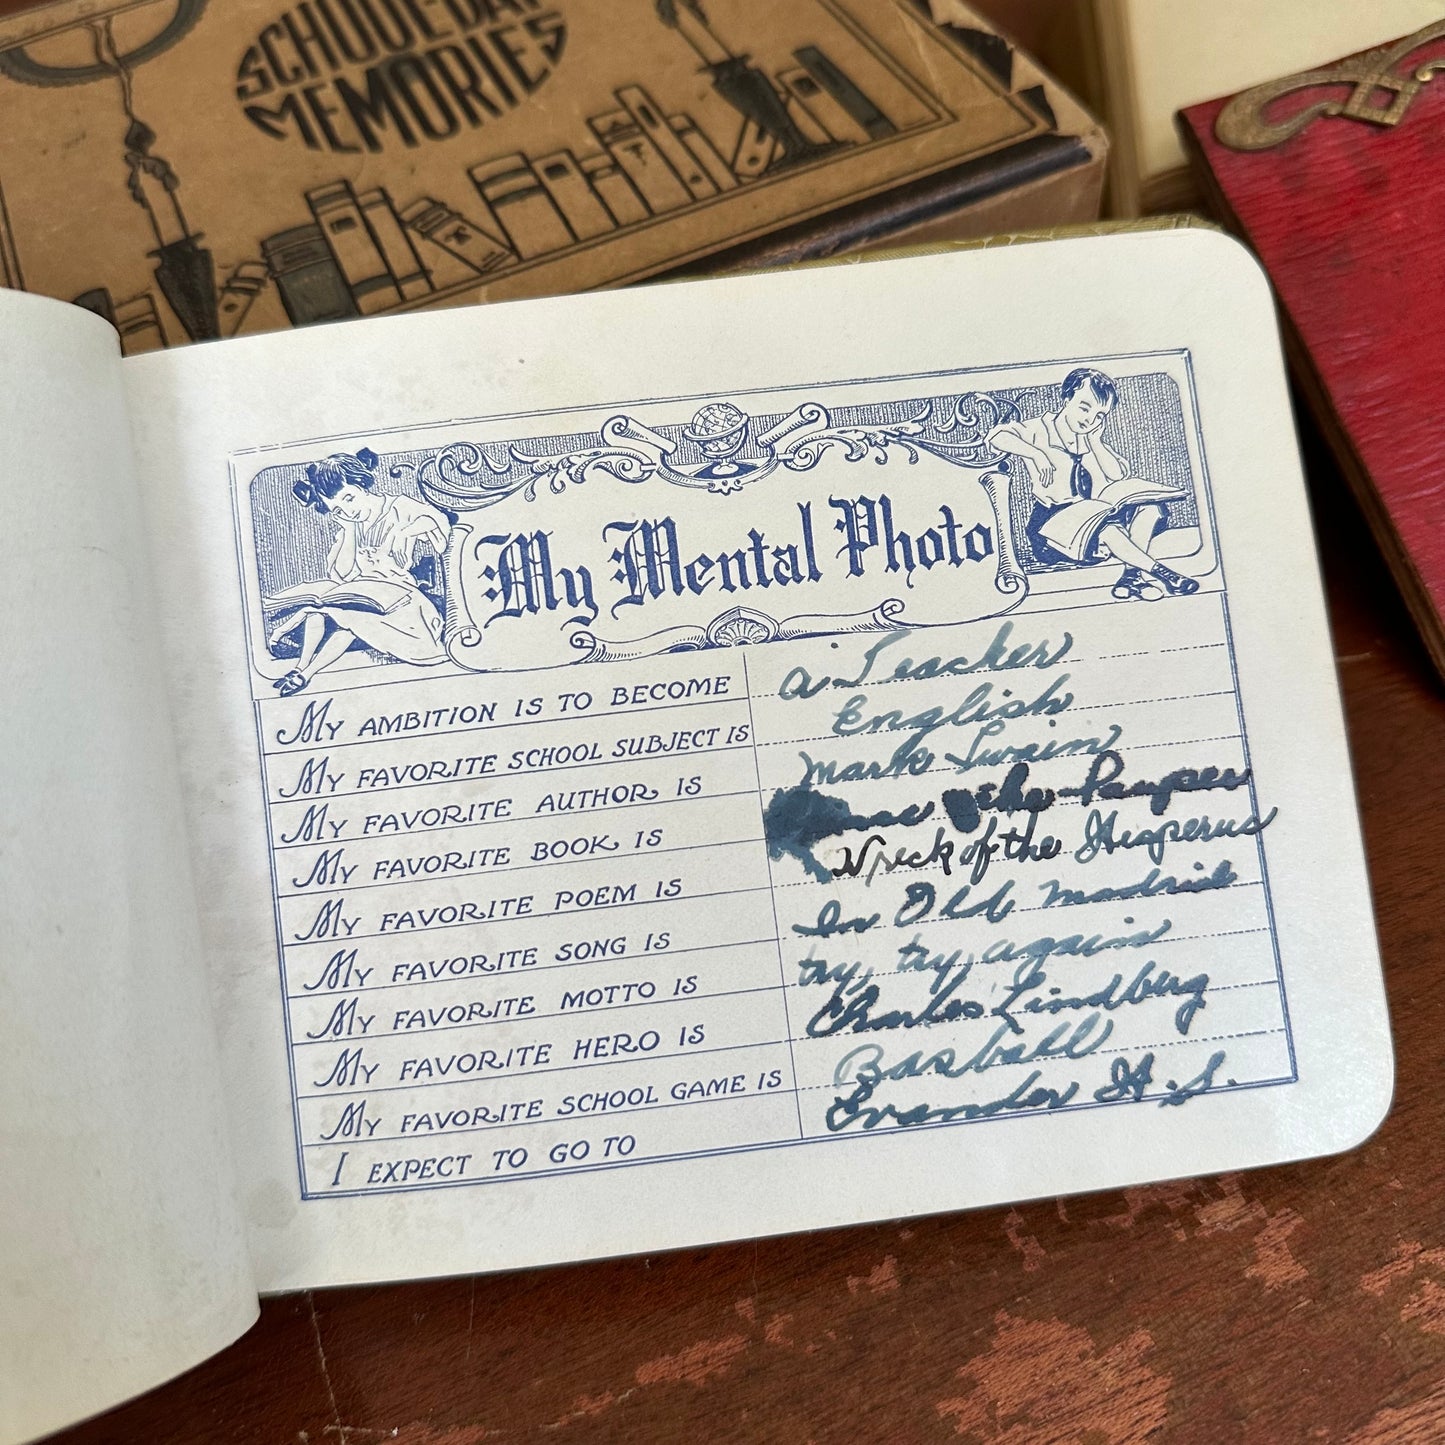 SCHOOL-DAY
MEMORIES
My Mental Photo
MY AMBITION IS TO BECOME a Teacker
MY FAVORITE SCHOOL SUBJECT IS English
MY FAVORITE AUTHOR IS Mark Twain
MY FAVORITE BOOK IS Pauper
MY FAVORITE POEM IS Wreck of the Hesperus
MY FAVORITE SONG IS In Old Madrid
MY FAVORITE MOTTO IS try, try, again
MY FAVORITE HERO IS Charles Lindberg
MY FAVORITE SCHOOL GAME IS Basball
I EXPECT TO GO TO Evander H.S.